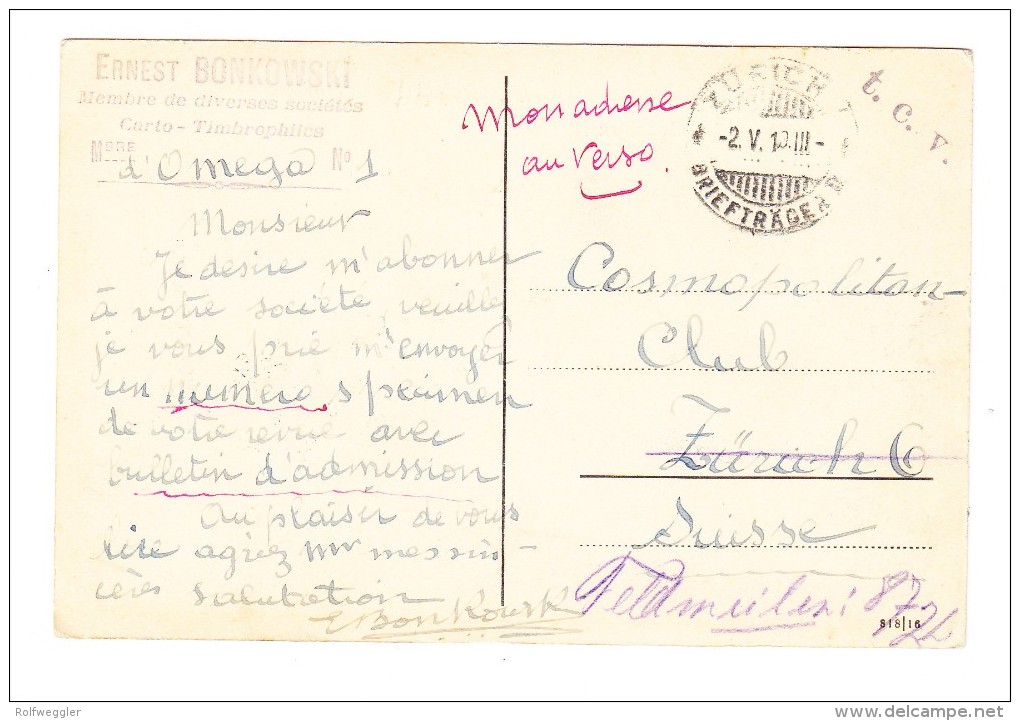 ERNEST BONKOWSKI
Membre de diverses sociétés
Carto-Timbrophiles
MBRE d'Omega No 1
Monsieur
Je desire m'abonner
à votre société, veuillez
je vous prie m'envoyer
un numero spécimen
de votre revue avec
bulletin d'admission
Au plaisir de vous
lire agréez Mr mes sin-
cères salutation
E Bonkowski
Mon adresse
au verso.
t. c. v.
ZÜRICH
-2.V.10.III-
BRIEFTRÄGER
Cosmopolitan-
Club
Zürich 6
Suisse
Feldmeilen:
818|16
Rolfweggler
www.delcampe.net